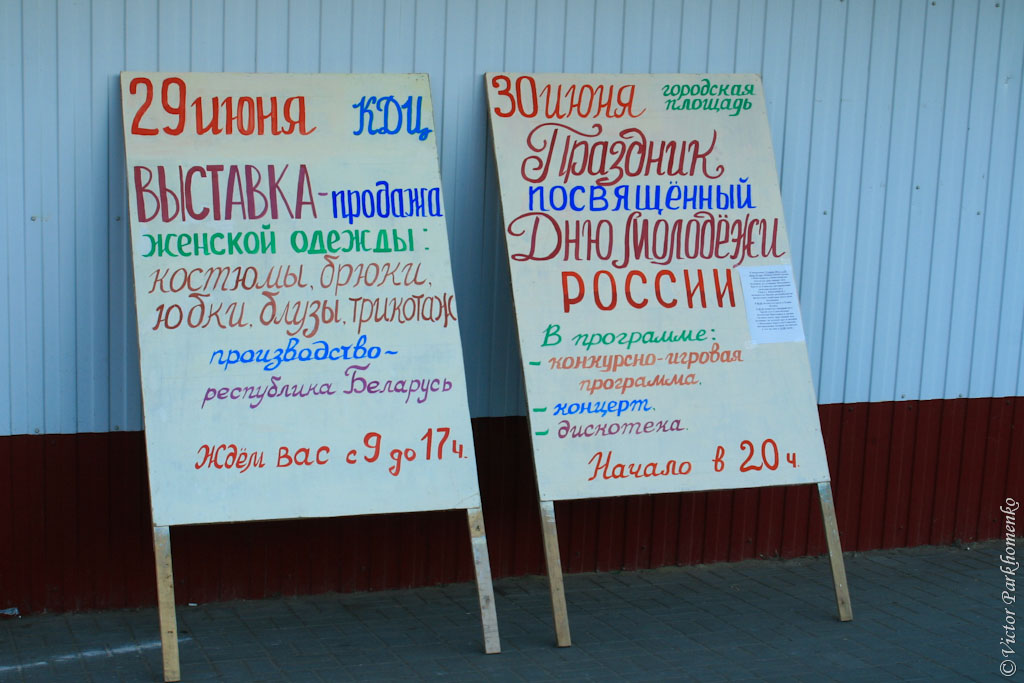 29 июня КДЦ
ВЫСТАВКА-продажа
женской одежды:
костюмы, брюки,
юбки, блузы, трикотаж
производство-
республика Беларусь
Ждём вас с 9 до 17ч.
30 июня городская
площадь
Праздник
посвящённый
Дню Молодёжи
РОССИИ
В программе:
- конкурсно-игровая
программа,
- концерт,
- дискотека.
Начало в 20 ч.
© Victor Parkhomenko